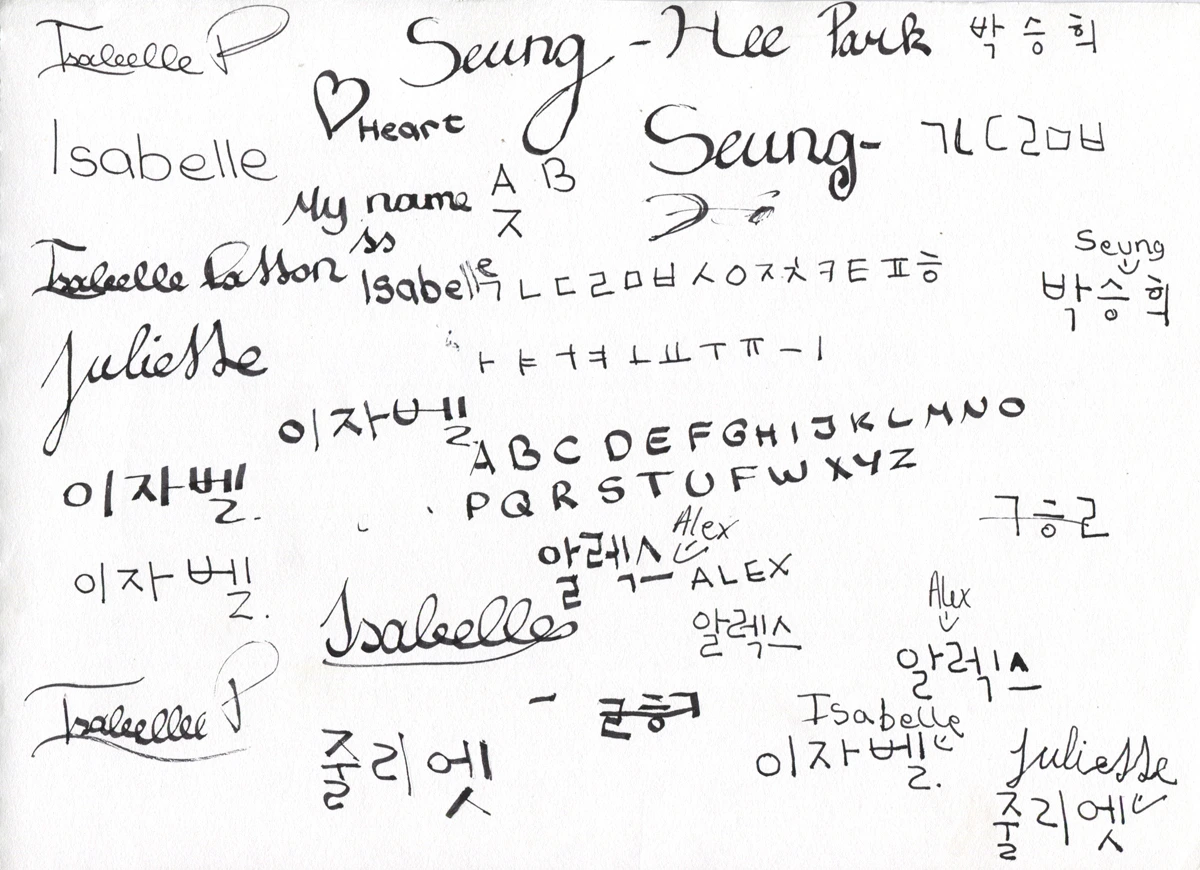 Isabelle P
Seung-Hee Park 박승희
Heart
Isabelle
Seung- ㄱㄴㄷㄹㅁㅂ
My name is Isabelle
A B
ㅈ
Isabelle
ㄴㄷㄹㅁㅂㅅㅇㅈㅊㅋㅌㅍㅎ
Seung
박승희
Juliette
ㅏㅑㅓㅕㅗㅛㅜㅠㅡㅣ
이자벨
ABCDEFGHIJKLMNO
PQRSTUFWXYZ
이자벨
Alex
알렉스 ALEX
이자벨
Isabelle
알렉스
Alex
알렉스
Isabelle P
줄리엣
Isabelle
이자벨
Juliette
줄리엣